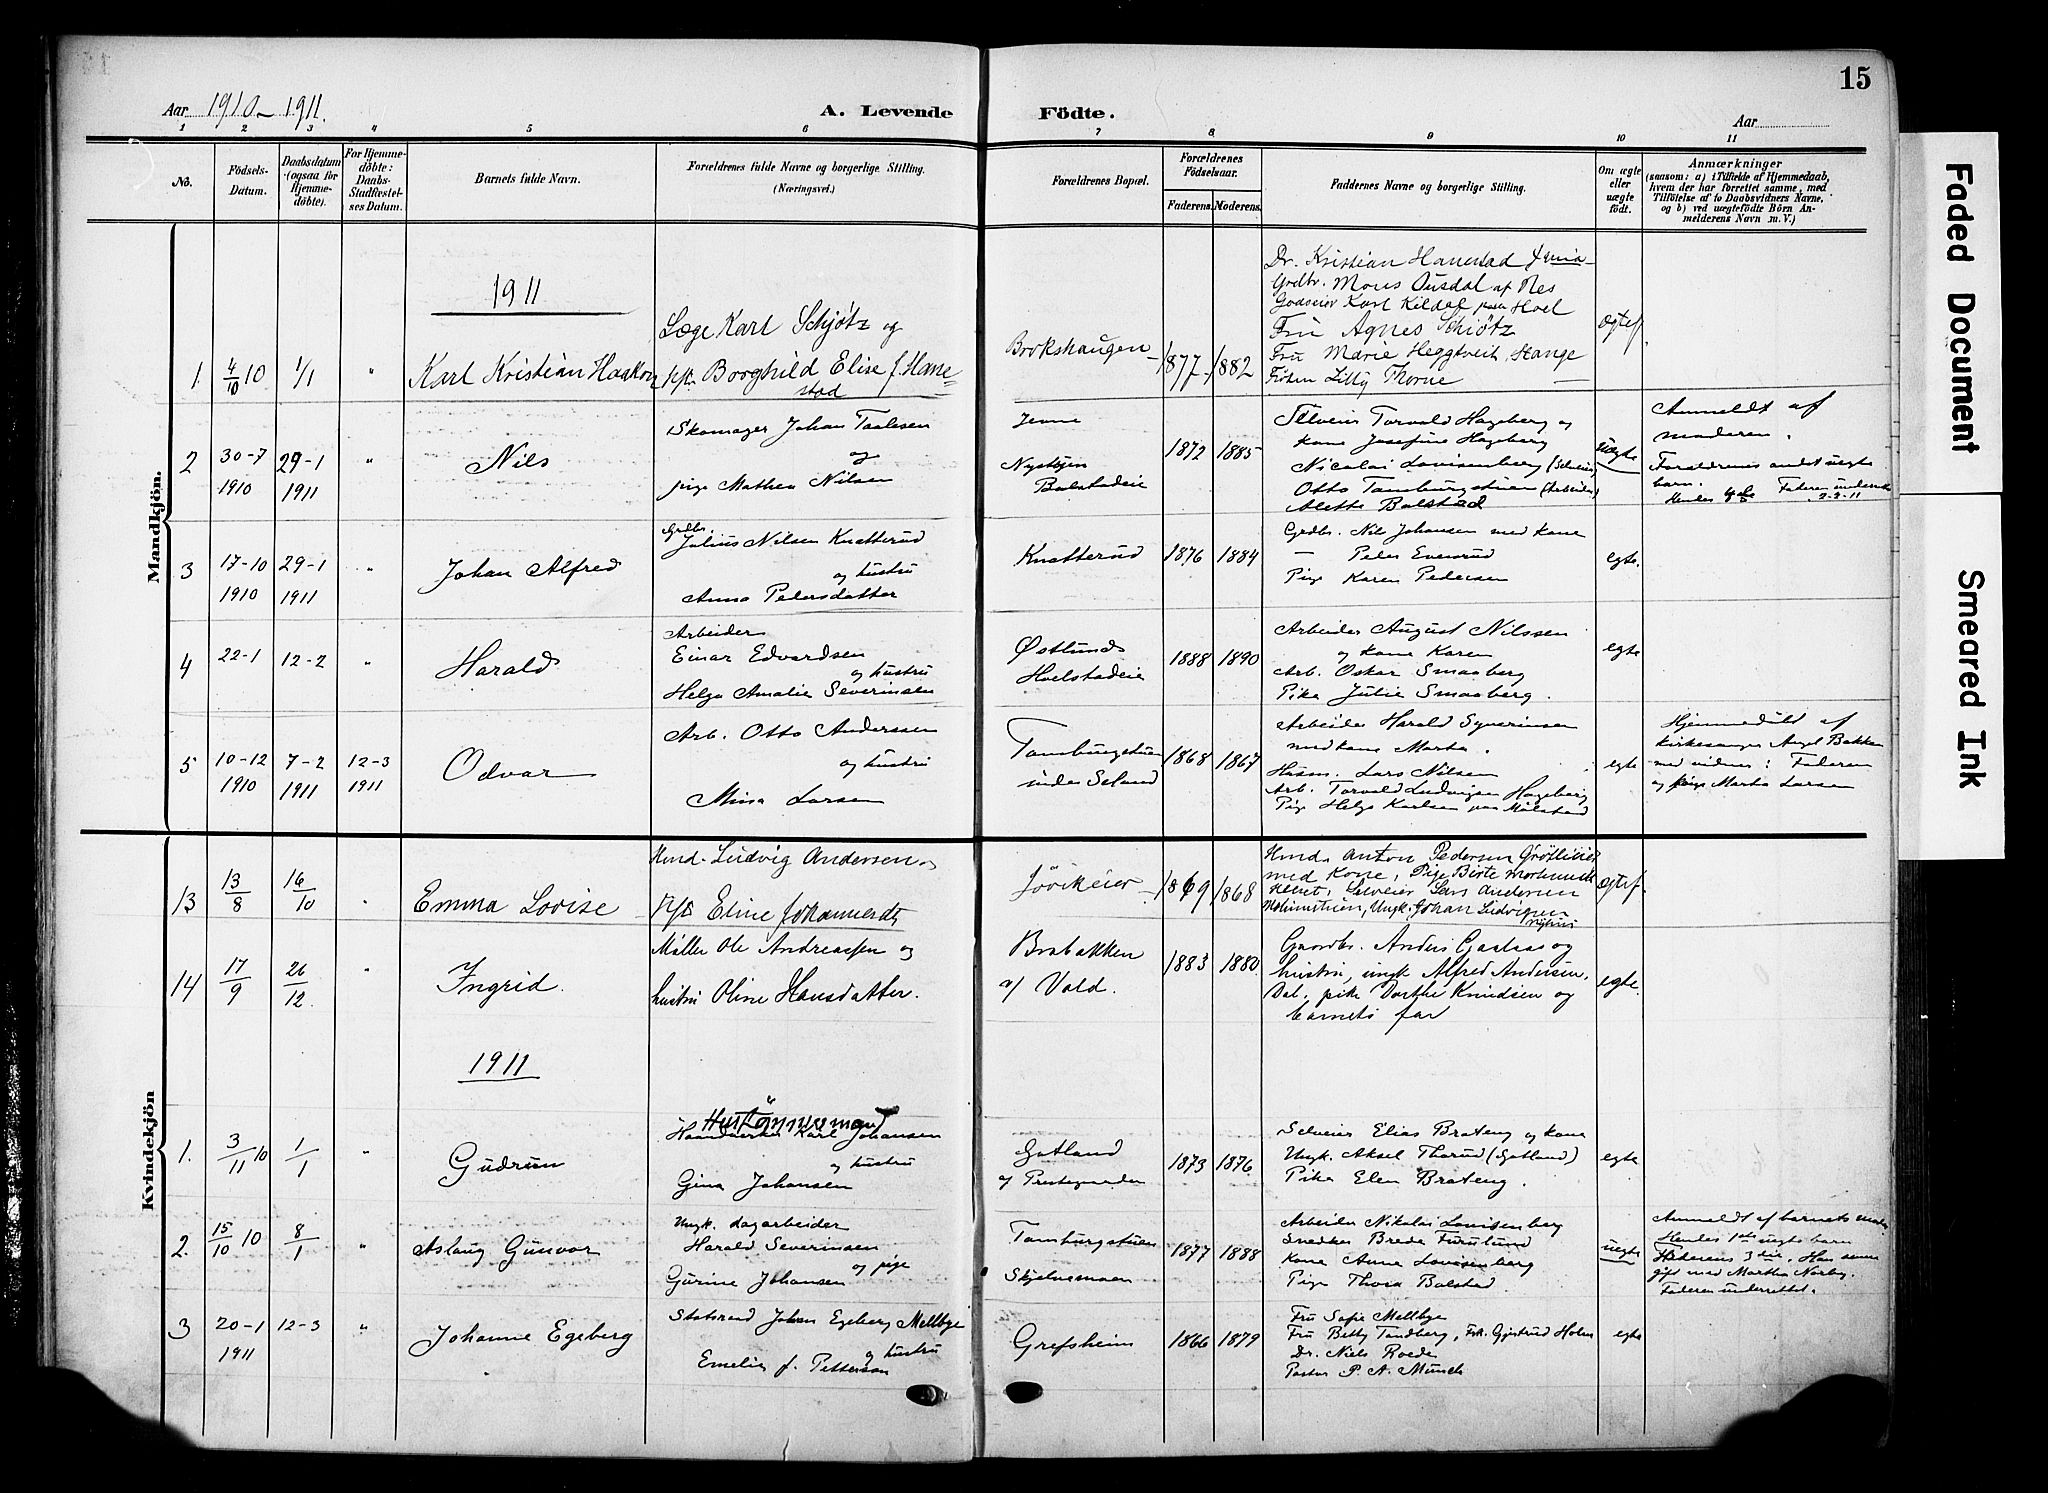 15
Aar 1910-1911. A. Levende Födte. Aar
1 2 3 4 5 6 7 8 9 10 11
No. Födsels-Datum. Daabsdatum (ogsaa for Hjemmedöbte). For Hjemmedöbte: Daabs-Stadfæstelses Datum. Barnets fulde Navn. Forældrenes fulde Navne og borgerlige Stilling. (Næringsvei.) Forældrenes Bopæl. Forældrenes Födselsaar. Faderens. Moderens. Faddernes Navne og borgerlige Stilling. Om ægte eller uægte födt. Anmærkninger
(saasom: a) i Tilfælde af Hjemmedaab, hvem der har forrettet samme, med Tilföielse af to Daabsvidners Navne, og b) ved uægtefödte Börn Anmelderens Navn m. V.)
Mandkjön.
1911
1. 4/10 10 1/1 " Karl Kristian Haakon
Læge Karl Schjötz og
Borghild Elise f. Hanestad
Brokshaugen 1877 1882
Dr. Kristian Hanestad
Grdbr. Mons Ousdal af Nes
Godseier Karl Kildal paa Hoel
Fru Agnes Schiötz
Fru Marie Heggtveit, Stange
Fröken Lilly Thorne
Ægtef.
2 30-7 1910 29-1 1911 " Nils
Skomager Johan Taalesen
og
pige Mathea Nilsen
Nystuen
Balstadeie
1872 1885
Selveier Torvald Hageberg og
kone Josefine Hageberg
Nicolai Lovisenberg (Selveier)
Otto Tamburgstuen (Arbeider)
Alette Balstad
uægte
Anmeldt af
moderen.
Forældrenes andet uægte
barn.
3 17-10 1910 29-1 1911 " Johan Alfred
Grdbr.
Julius Nilsen Knatterud
og hustru
Anna Pedersdatter
Knatterud 1876 1884
Grdbr. Nils Johansen med kone
— Peder Evensrud
Pige Karen Pedersen
egte.
4 22-1 12-2 " Harald
Arbeider
Einar Edvardsen
og hustru
Helga Amalie Severinsen
Østlund
Hoelstadeie
1888 1890
Arbeider August Nilssen
og kone Karen
Arb. Oskar Smaaberg
Pike Julie Smaaberg.
egte
5 10-12 1910 7-2 1911 12-3 1911 Odvar
Arb. Otto Anderssen
og hustru
Mina Larsen
Tamburgstuen
under Seland
1868 1867
Arbeider Harald Syverinsen
med kone Marta.
Husm. Lars Nilsen
Arb. Torvald Ludvigsen Hageberg
Pige Helga Karlsen paa Målstad
egte
Hjemmedöbt af
kirkesanger Bakken
med vidner: Faderen
og pige Marta Larsen
Kvindekjön
13 13/8 16/10 " Emma Lovise
Ludvig Andersen
Eline Johannesdt.
Jövikeier 1869 1868
Anton Pedersen
med Kone, Pige Birte
Selveier Lars Andersen
Ungk. Johan Ludvigsen
Ægtef.
14 17/9 26/12 " Ingrid.
Möller Ole Andreassen og
hustru Oline Hansdatter.
Brabakken
af Vold.
1883 1880
Gaardbr. Anders Gaalaas og
hustru, ungk Alfred Andersen
Dal, pike Dorthe Knudsen og
barnets far
egte.
1911
1. 3/11 10 1/1 " Gudrun
Karl Johansen
og hustru
Gina Johansen
Gotland
af Prestegaarden
1873 1876
Selveier Elias Brateng og kone
Ungk. Aksel Thorud (Gotland)
Pike Elen Brateng.
egte
2. 15/10 10 8/1 " Aslaug Gunvor
Ungk. dagarbeider
Harald Severinsen
og pige
Gurine Johansen
Tamburgstuen
Skjelvemoen
1877 1888
Arbeider Nikolai Lovisenberg
Snedker Brede Furulund
Kone Anna Lovisenberg
Pige Thora Balstad
uegte
Anmeldt af barnets moder
Hendes 1ste uegte barn
Faderens 3die. Han senere
gift med Martha Norby.
Faderen underrettet.
3 20-1 1911 12-3 " Johanne Egeberg
Statsraad Johan Egeberg Mellbye
og hustru
Emelie f. Petterson
Grefsheim 1866 1879
Fru Sofie Mellbye
Fru Betty Tandberg, Frk. Gjertrud Holm
Dr. Niels Roede
Pastor P. A. Munch
egte
Faded Document
Smeared Ink